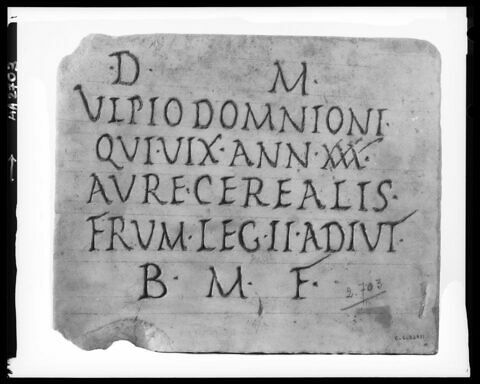 ·D· M·
VLPIO DOMNIONI·
QVI VIX· ANN· XXX·
AVRE·CEREALIS·
FRVM·LEG·II·ADIVT·
B· M· F·
2.703
MA2703